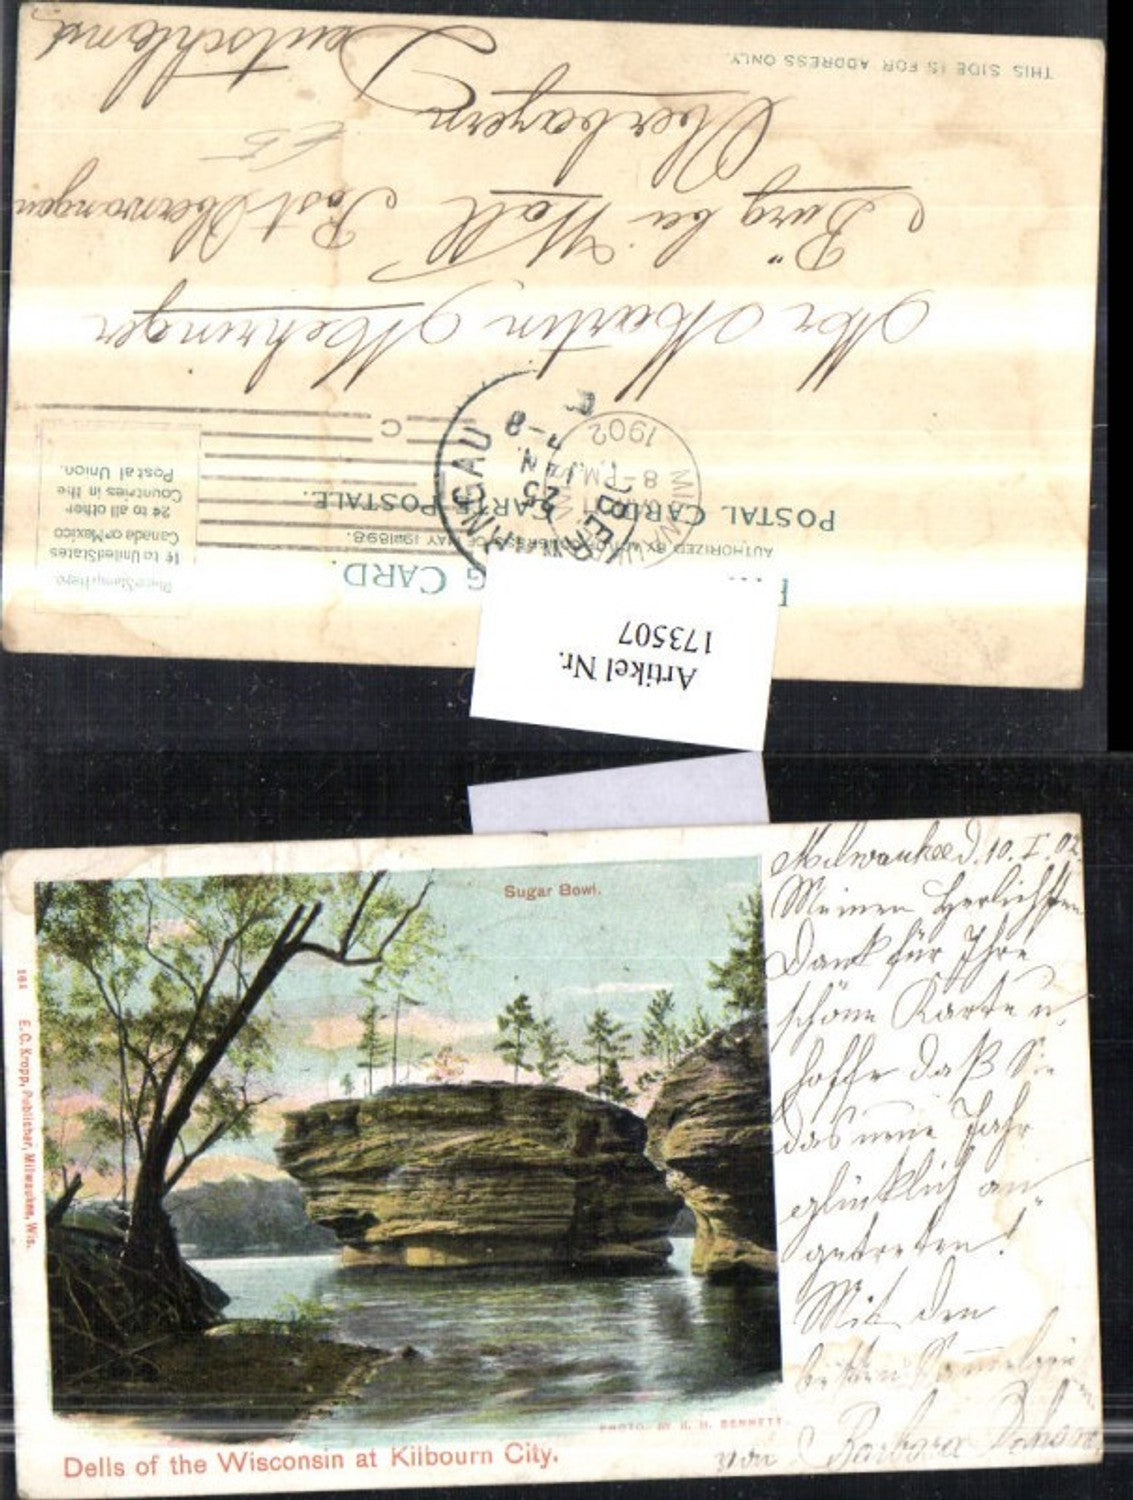 THIS SIDE IS FOR ADDRESS ONLY.
PRIVATE MAILING CARD.
AUTHORIZED BY ACT OF CONGRESS OF MAY 19 1898.
POSTAL CARD. CARTE POSTALE.
Place Stamp Here.
1¢ to United States
Canada or Mexico
2¢ to all other
Countries in the
Postal Union.
MILWAUKEE
8-PM
1902
C
OBERWANGAU
25
JAN.
7-8
Mr Martin Mehringer
Bürg bei Wall Post Oberwangau
Oberbayern
Deutschland
Artikel Nr.
173507
Sugar Bowl.
164 E. C. Kropp, Publisher, Milwaukee, Wis.
PHOTO. BY H. H. BENNETT.
Dells of the Wisconsin at Kilbourn City.
Milwaukee d. 10. I. 02.
Meinen Herlichsten
Dank für Ihre
schöne Karte u.
hoffe daß Sie
das neue Jahr
glücklich an
getreten!
Mit den
besten
von Barbara